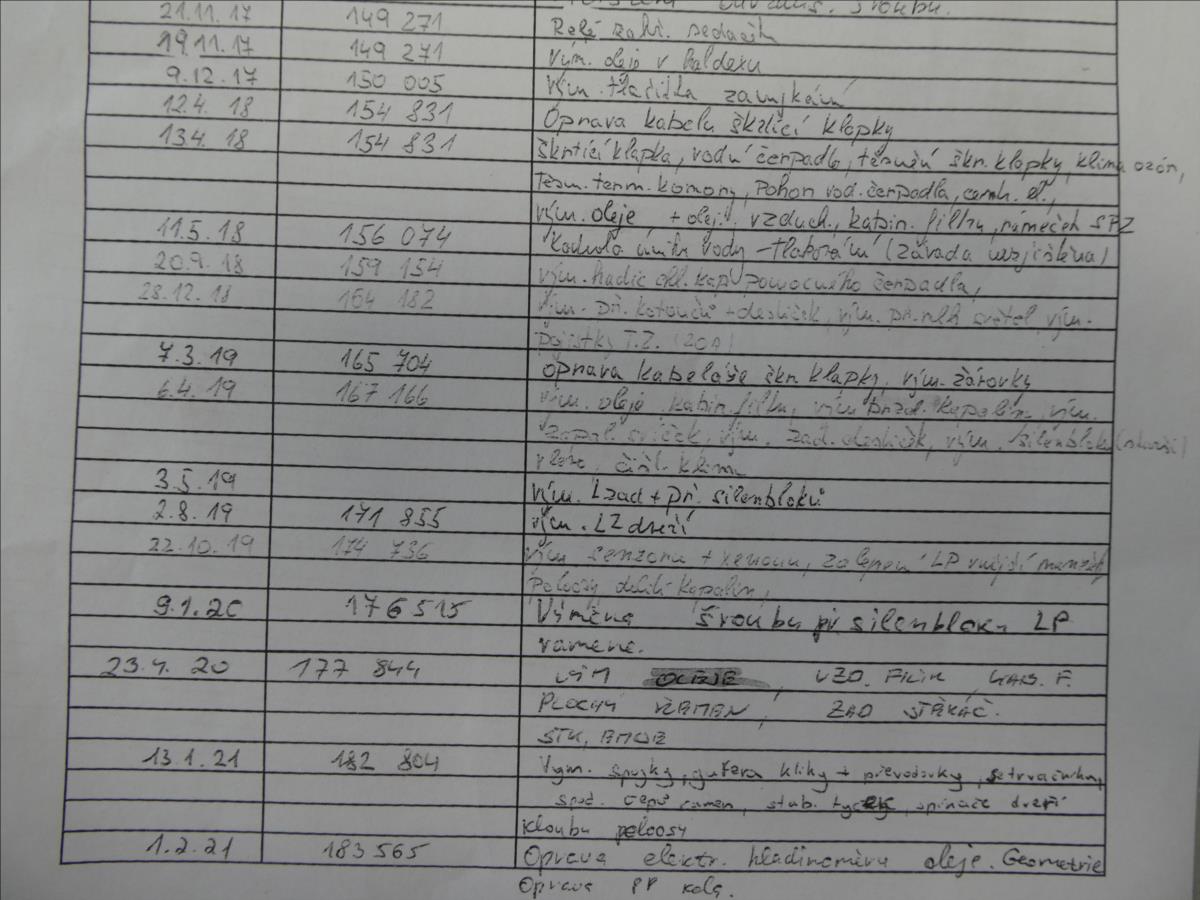 šroubu.
21.11.17 149 271 Relé
19.11.17 149 271 Vým. oleje v haldexu
9.12.17 150 005 Vým. tlačítka zamykání
12.4. 18 154 831 Oprava kabelu škrtící klapky
13.4. 18 154 831 škrtící klapka, vodní čerpadlo, těsnění škr. klapky, klima ozón,
Těsn. term. komory, Pohon vod. čerpadla,
vým. oleje + olej. vzduch. kabin. filtru, rámeček SPZ
11.5.18 156 074 Kontrola úniku vody - tlakování (závada nezjištěna)
20.9.18 159 154 vým. hadic chl. kap. pomocného čerpadla,
28.12.18 164 182 Vým. př. kotoučů + destiček, vým. světel, vým.
Pojistky T.Z. (20A)
7.3.19 165 704 oprava kabeláže škr. klapky, vým. žárovky
6.4.19 167 166 Vým. oleje kabin. filtru, vým brzd. kapalin, vým.
zapal. svíček, vým. zad. destiček, vým. silenbloku
čišt. klima
3.5.19 vým. Lzad + př. silenbloků
2.8.19 171 855 vým. LZ dveří
22.10.19 174 736 vým senzoru + xenonu, zalepení LP vnější
kapalin,
9.1.20 176 515 Výměna šroubu př silenbloku LP
ramene.
23.4. 20 177 844 VÝM OLEJE, VZD. FILTR
PLOCHÝ ŘEMEN, ZAD STĚRAČ.
STK, EMISE
13.1.21 182 804 Vym. spojky, gufera kliky + převodovky, setrvačníku,
spod. čepů ramen, stab. tyček, spínače dveří
kloubu poloosy
1.2.21 183 565 Oprava elektr. hladinoměru oleje. Geometrie
Oprava PP kola.